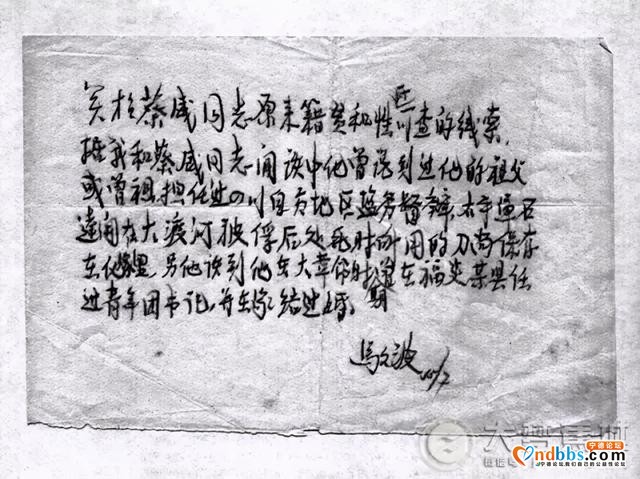 关于蔡威同志原来籍贯和姓氏可查的线索,
据我和蔡威同志闲谈中他曾谈到过他的祖父
或曾祖担任过四川自贡地区盐务督办,太平军石
达开在大渡河被俘后处死时所用的刀尚保存
在他家里,另他谈到他在大革命时期曾在福安某县任
过青年团书记,并在家结过婚。
马文波
ndbbs.com
宁德论坛
宁德论坛,我们自己的公益性论坛